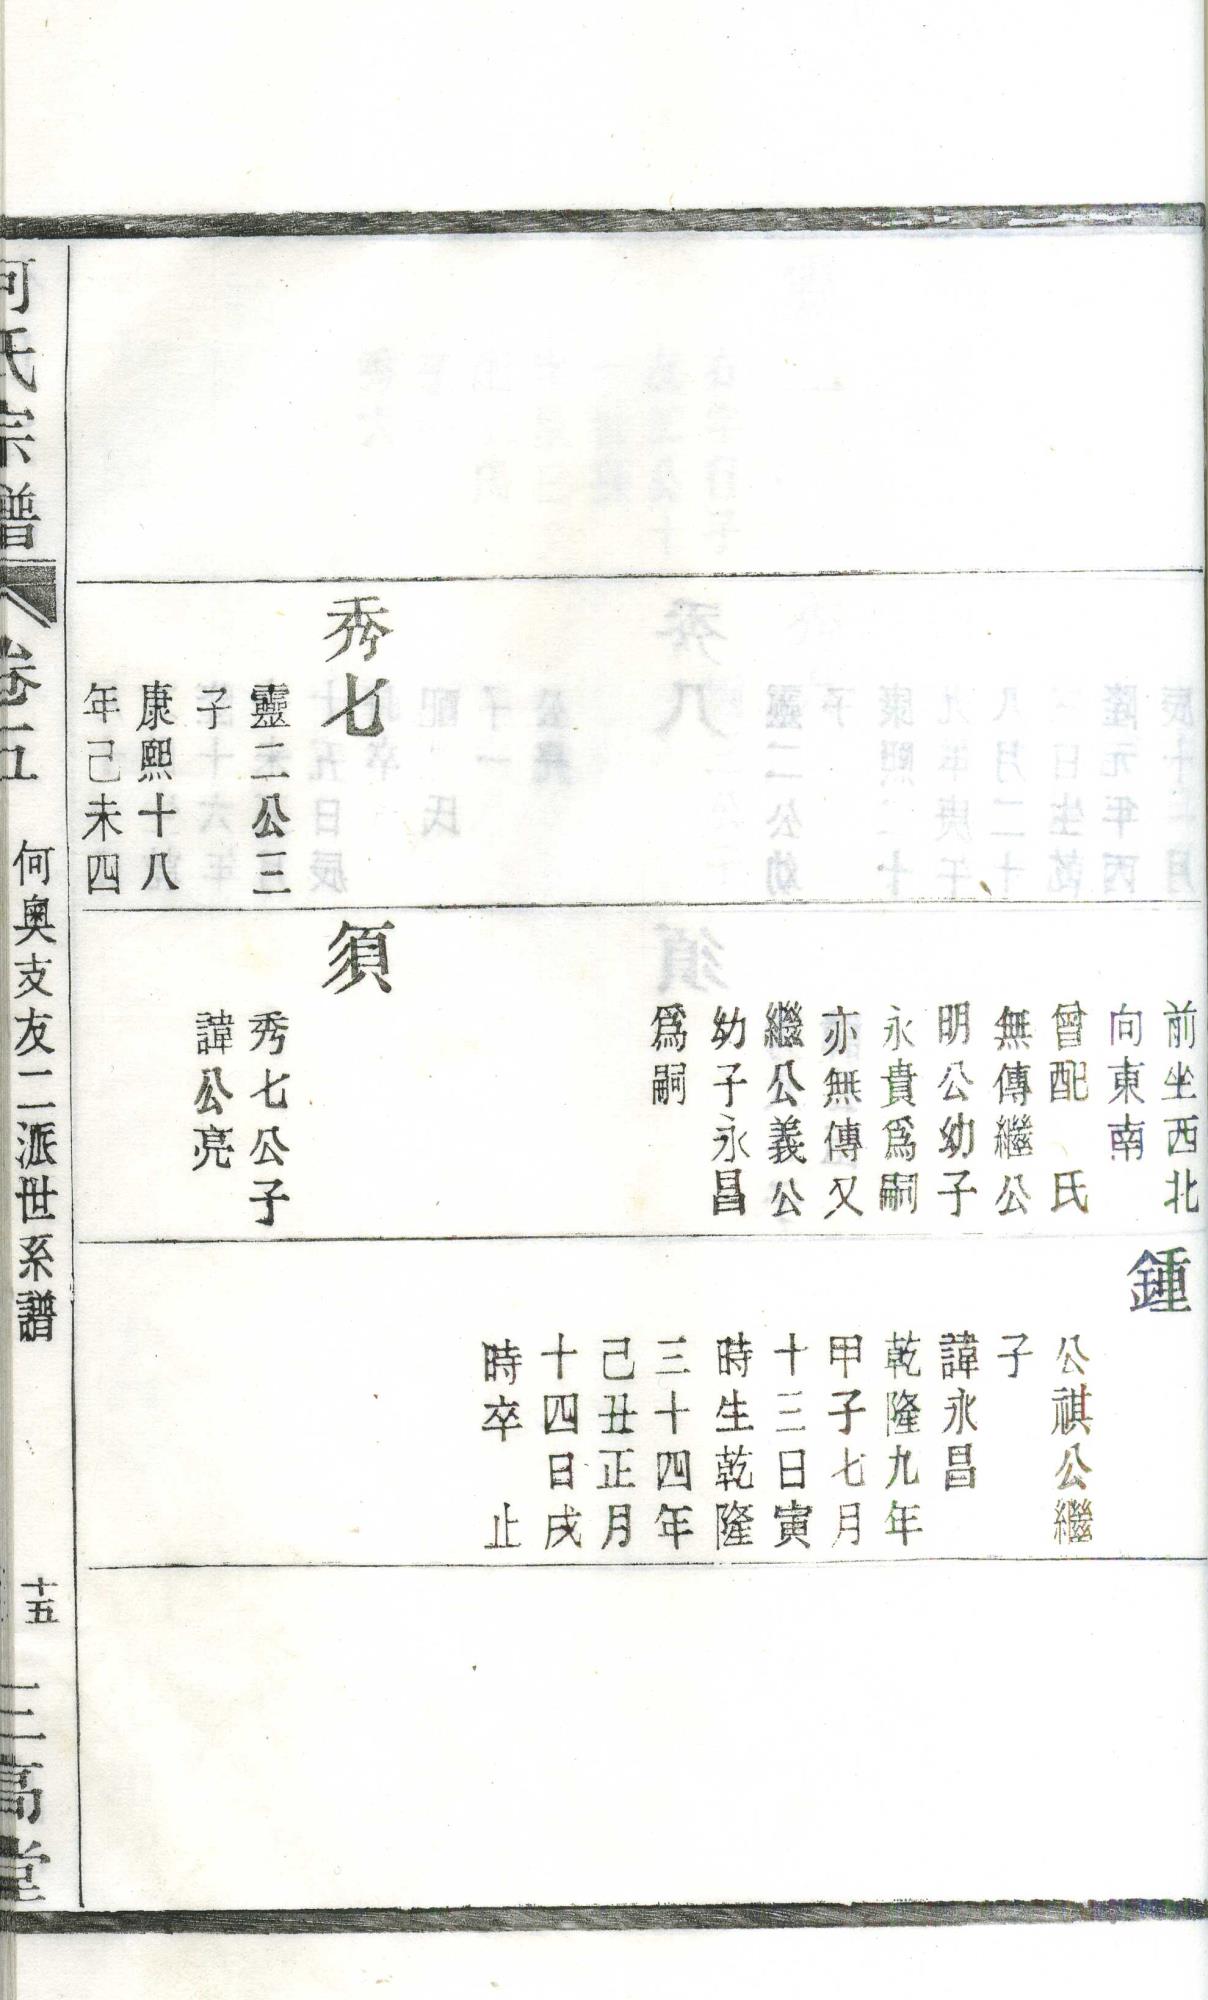 秀七
靈二公三
子
康熙十八
年己未四
前坐西北
向東南
曾配　氏
無傳繼公
明公幼子
永貴爲嗣
亦無傳又
繼公義公
幼子永昌
爲嗣
須
秀七公子
諱公亮
鍾
公祺公繼
子
諱永昌
乾隆九年
甲子七月
十三日寅
時生乾隆
三十四年
己丑正月
十四日戌
時卒　止
何氏宗譜
卷五
何奧支友二派世系譜
十五
三高堂